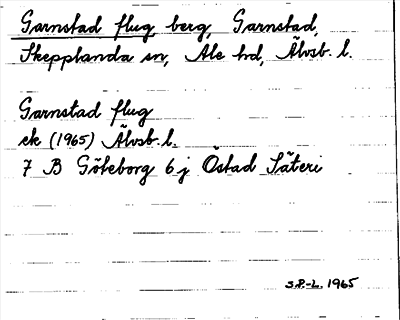 Garnstad flug, berg, Garnstad,
Skepplanda sn, Ale hd, Älvsb. l.
Garnstad flug
ek (1965) Älvsb. l.
7 B Göteborg 6 j Östad Säteri
S.P.-L. 1965